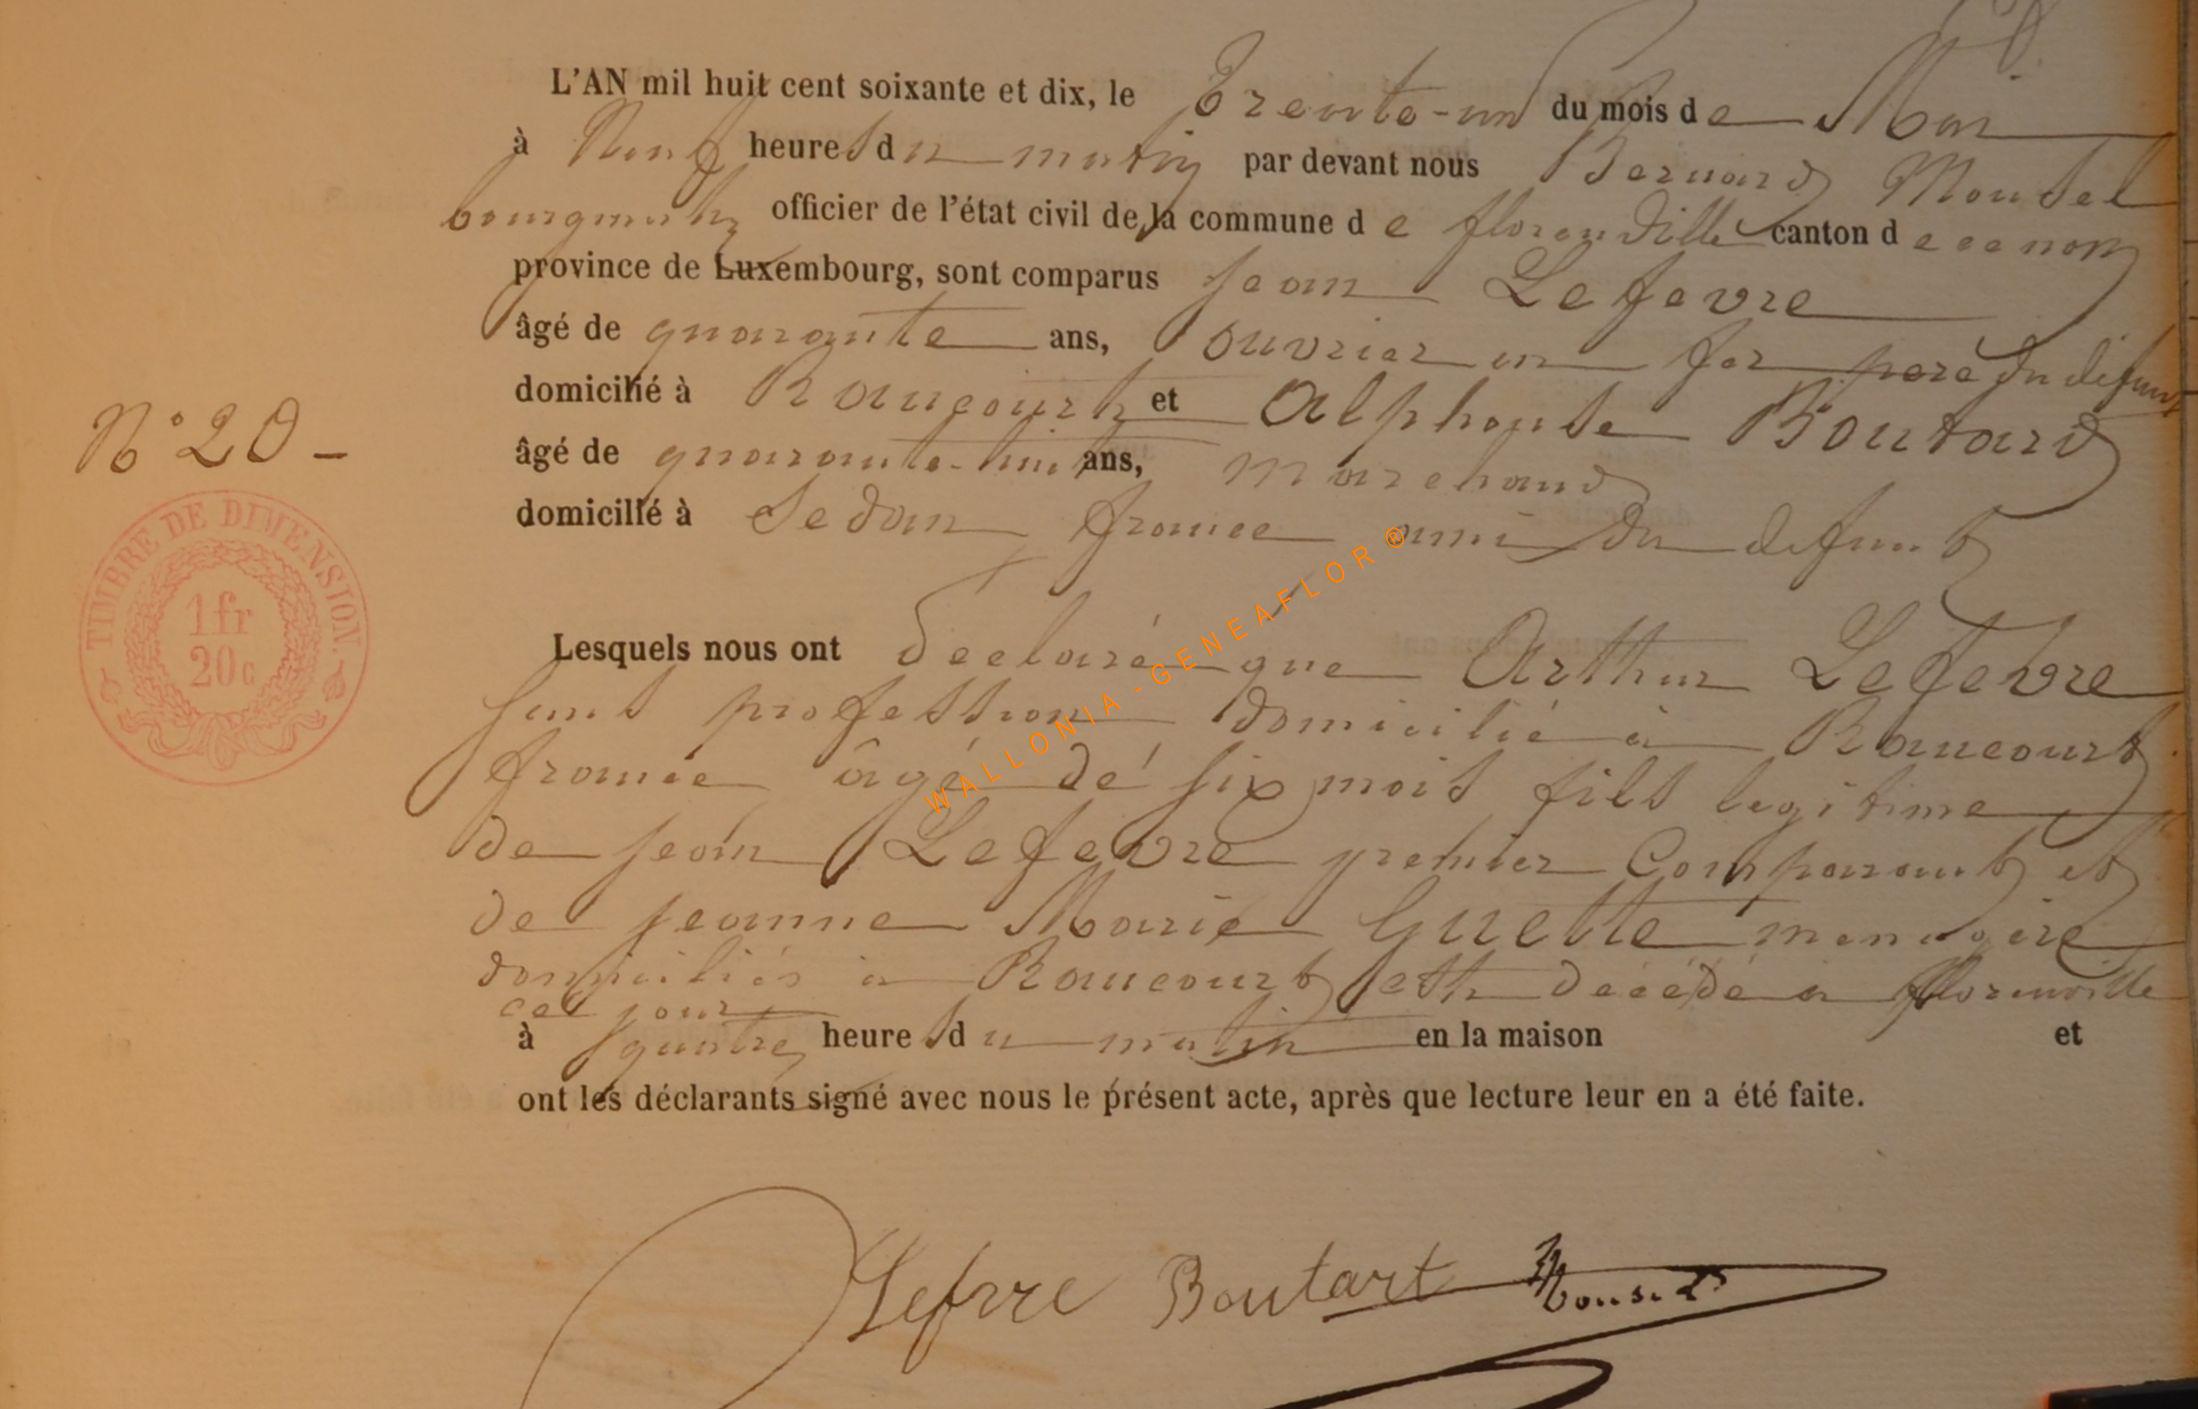 L'AN mil huit cent soixante et dix, le Trente-un du mois de Mai
à Neuf heures du matin par devant nous Bernard Mousel
bourgmestre officier de l'état civil de la commune de florenville canton de ce nom
province de Luxembourg, sont comparus Jean Lefevre
âgé de quarante ans, ouvrier en fer père du défunt
domicilié à Raucourt et Alphonse Boutard
N° 20 -
âgé de quarante-huit ans, marchand
domicilié à Sedan france ami du defunt
TIMBRE DE DIMENSION.
1 fr
20 c
Lesquels nous ont declaré que Arthur Lefevre
sans profession domicilié à Raucourt
france âgé de six mois fils legitime
de Jean Lefevre premier Comparant et
de Jeanne Marie Guette menagère
domiciliés à Raucourt est décédé à florenville
cet jour
à quatre heures du matin en la maison et
ont les déclarants signé avec nous le présent acte, après que lecture leur en a été faite.
Lefvre Boutart Mousel
WALLONIA-GENEAFLOR ®